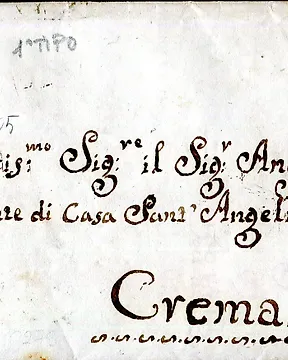 1° TIPO
5
is:mo Sig:re il Sig:r An
te di Casa Sant' Angeli
Crema